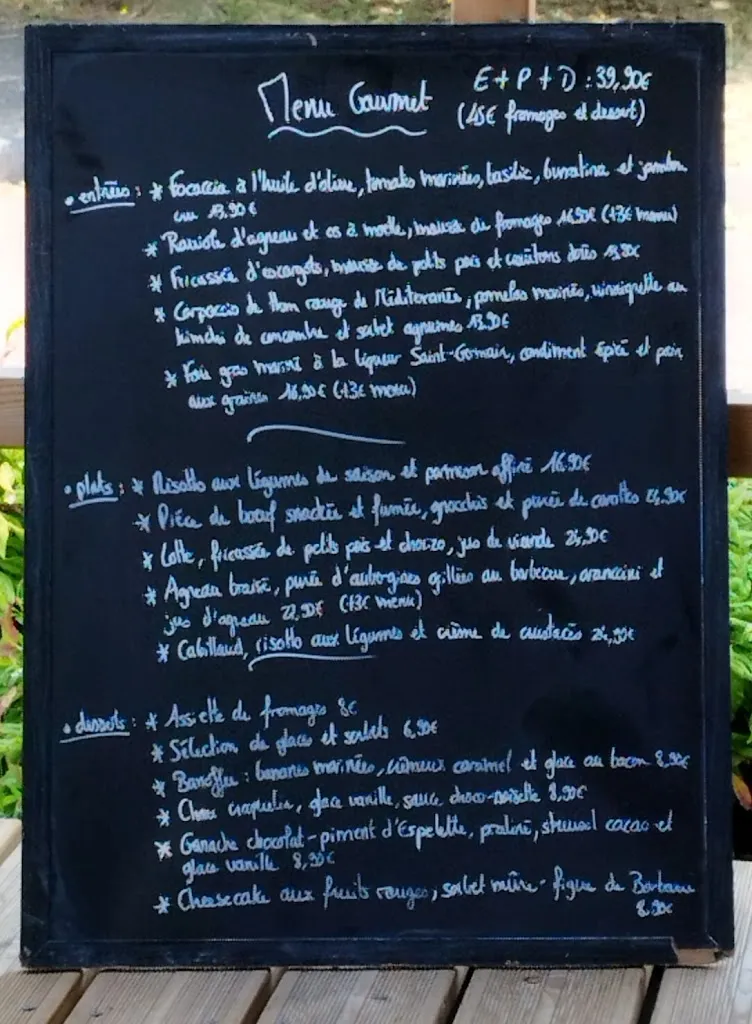 Menu Gourmet
E + P + D : 39,90€
(45€ fromages et dessert)
• entrées : * Focaccia à l'huile d'olive, tomates marinées, basilic, burratina et jambon
cru 13,90€
* Raviole d'agneau et os à moelle, mousse de fromages 16,90€ (+3€ menu)
* Fricassée d'escargots, mousse de petits pois et croûtons dorés 13,90€
* Carpaccio de thon rouge de Méditerranée, pomelos marinés, vinaigrette au
kimchi de concombre et sorbet agrumes 13,90€
* Foie gras mariné à la liqueur Saint-Germain, condiment épicé et pain
aux graines 16,90€ (+3€ menu)
• plats : * Risotto aux légumes de saison et parmesan affiné 16.90€
* Pièce de boeuf snackée et fumée, gnocchis et purée de carottes 24,90€
* Lotte, fricassée de petits pois et chorizo, jus de viande 24,90€
* Agneau braisé, purée d'aubergines grillées au barbecue, arancini et
jus d'agneau (+3€ menu)
* Cabillaud, risotto aux légumes et crème de crustacés 24,90€
• desserts : * Assiette de fromages 8€
* Sélection de glaces et sorbets 6,90€
* Banoffee : bananes marinées, crémeux caramel et glace au bacon 8,90€
* Choux craquelin, glace vanille, sauce choco-noisette 8,90€
* Ganache chocolat-piment d'Espelette, praliné, streusel cacao et
glace vanille 8,90€
* Cheesecake aux fruits rouges, sorbet mûre-figue de Barbarie
8.90€